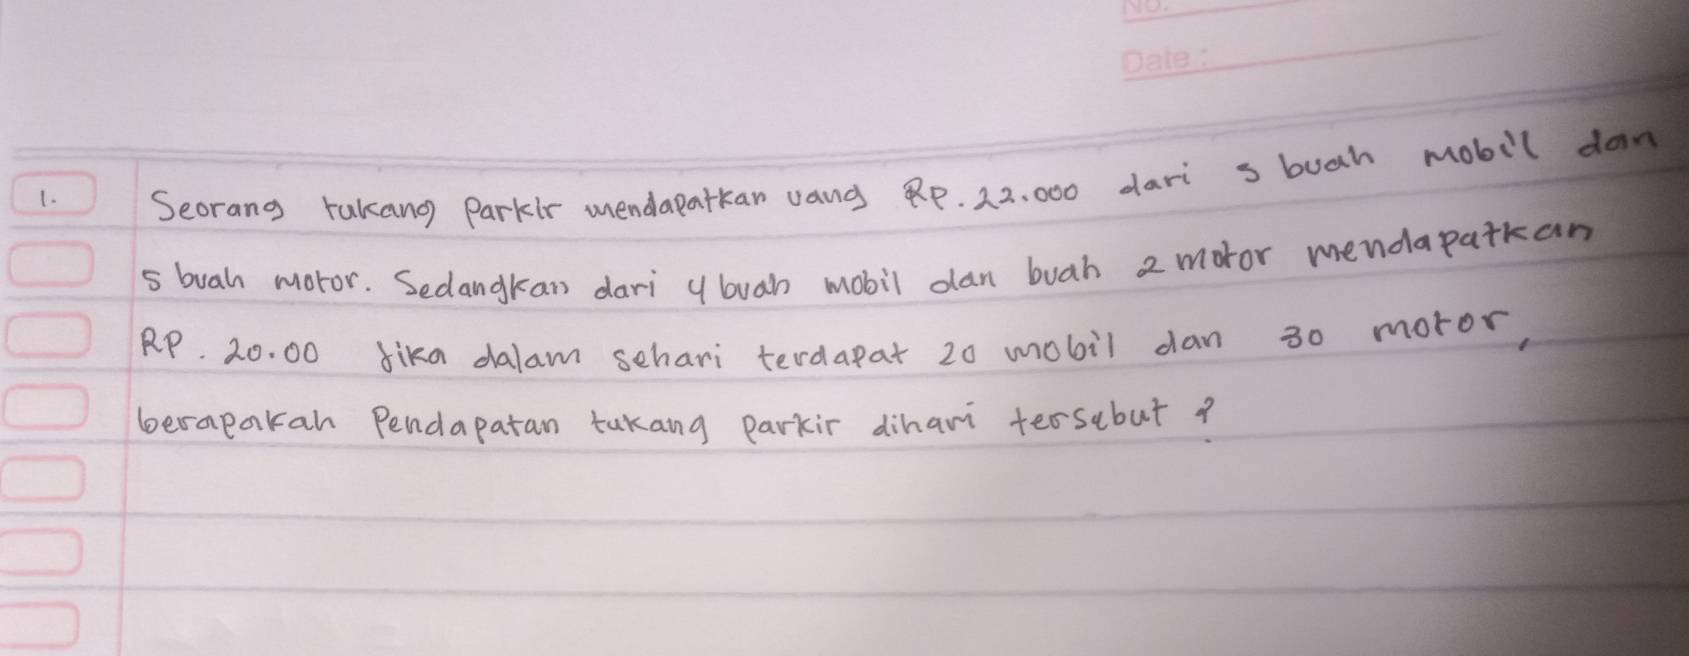 No.
Date :
1. Seorang tukang parkir mendapatkan uang Rp. 22.000 dari 3 buah mobil dan
5 buah motor. Sedangkan dari 4 buah mobil dan buah 2 motor mendapatkan
RP. 20.00 Jika dalam sehari terdapat 20 mobil dan 30 motor,
berapakah Pendapatan tukang parkir dihari tersebut ?